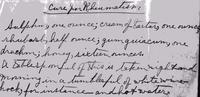 Cure for Rheumatism
Sulphur, one ounce; cream of tartar, one ounce;
rhubarb, half ounce; gum guiacum, one
drachm; honey, sixteen ounces
A tablespoonful of this is taken night and
morning in a tumblerful of white wine
hock, for instance and hot water